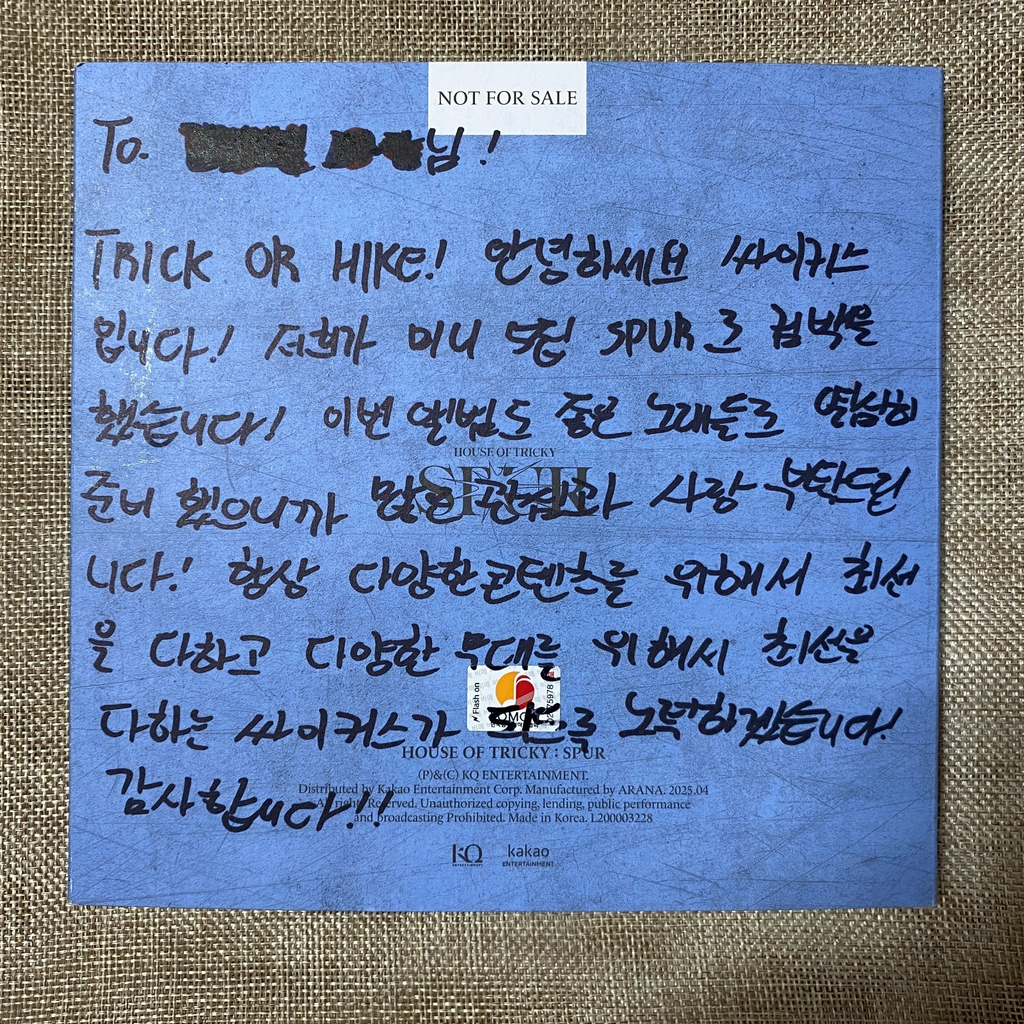 NOT FOR SALE
To. 님!
TRICK OR HIKE! 안녕하세요 싸이커스
입니다! 저희가 미니 5집 SPUR로 컴백을
했습니다! 이번 앨범도 좋은 노래들로 열심히
HOUSE OF TRICKY
준비 했으니까 많은 관심과 사랑 부탁드린
니다! 항상 다양한 콘텐츠를 위해서 최선
을 다하고 다양한 무대를 위해서 최선을
Flash on
다하는 싸이커스가 되도록 노력하겠습니다!
HOUSE OF TRICKY : SPUR
(P)&(C) KQ ENTERTAINMENT.
Distributed by Kakao Entertainment Corp. Manufactured by ARANA. 2025.04
All rights Reserved. Unauthorized copying, lending, public performance
and broadcasting Prohibited. Made in Korea. L200003228
감사합니다!!
KQ ENTERTAINMENT
kakao ENTERTAINMENT